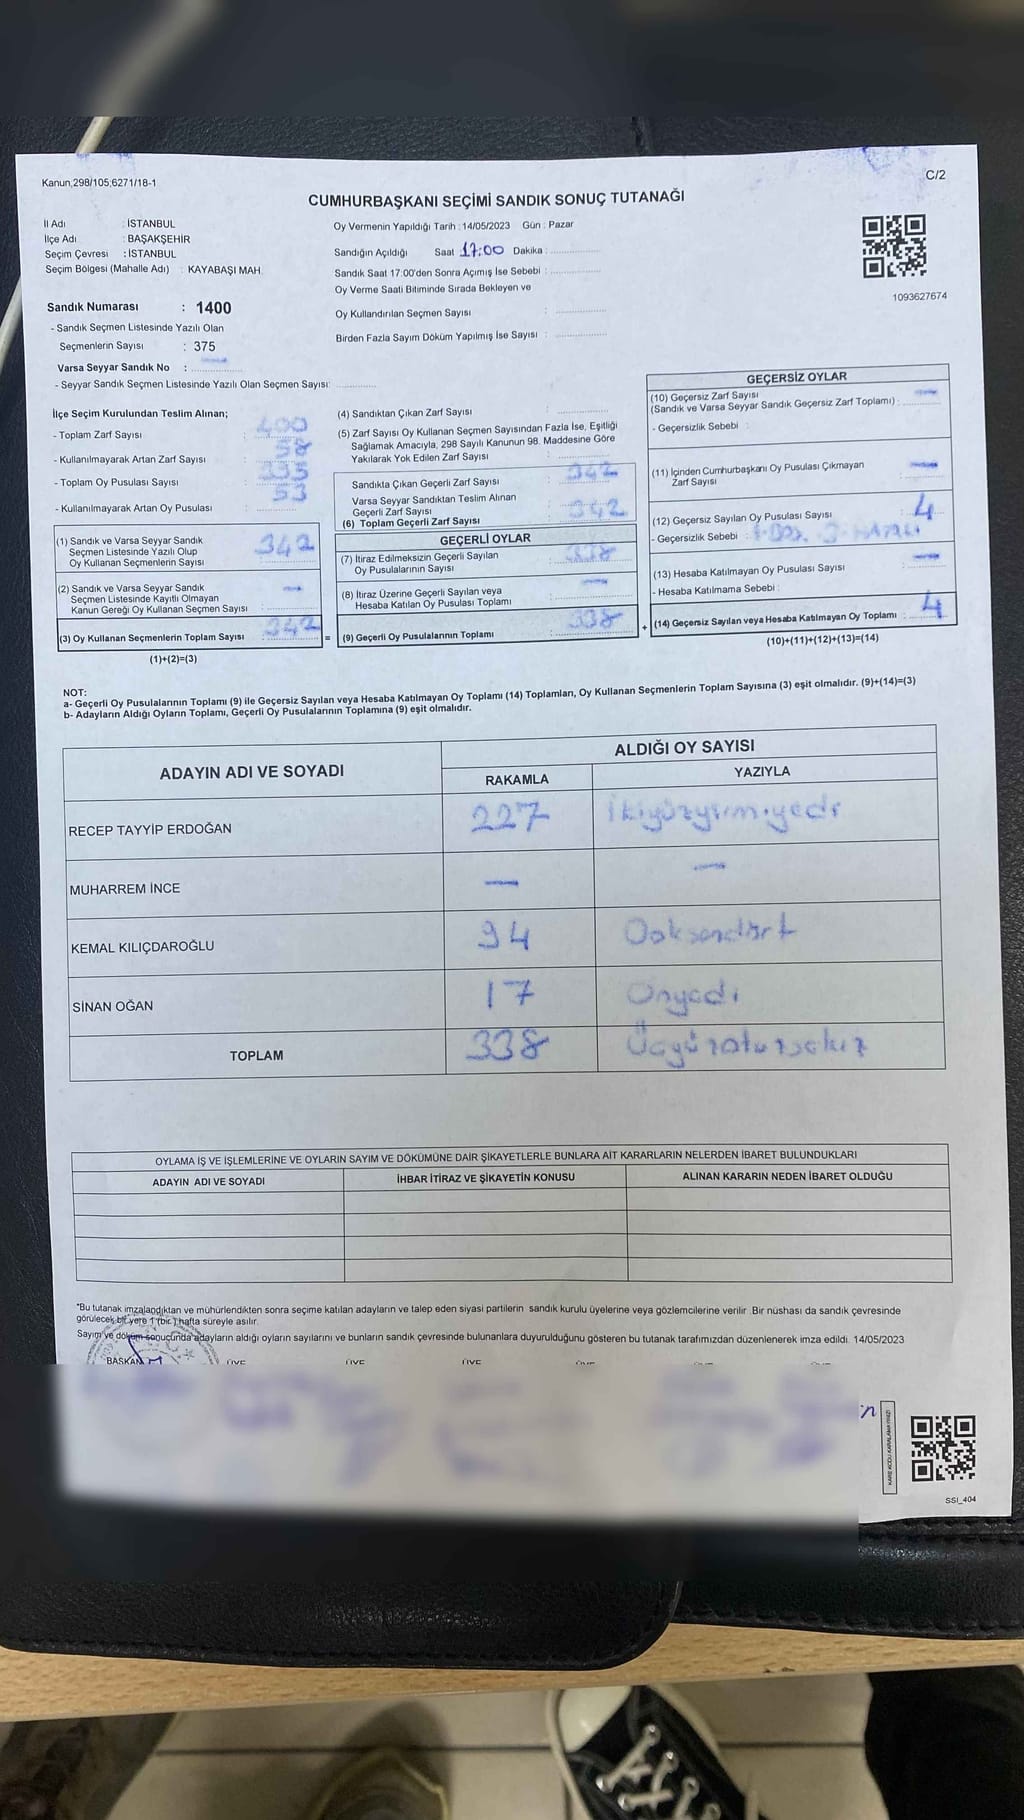 Kanun,298/105,6271/18-1
C/2
CUMHURBAŞKANI SEÇİMİ SANDIK SONUÇ TUTANAĞI
İl Adı : İSTANBUL
İlçe Adı : BAŞAKŞEHİR
Seçim Çevresi : İSTANBUL
Seçim Bölgesi (Mahalle Adı) : KAYABAŞI MAH.
Sandık Numarası : 1400
- Sandık Seçmen Listesinde Yazılı Olan
Seçmenlerin Sayısı : 375
Varsa Seyyar Sandık No :
- Seyyar Sandık Seçmen Listesinde Yazılı Olan Seçmen Sayısı:
Oy Vermenin Yapıldığı Tarih : 14/05/2023 Gün : Pazar
Sandığın Açıldığı Saat 17:00 Dakika :
Sandık Saat 17:00'den Sonra Açımış İse Sebebi :
Oy Verme Saati Bitiminde Sırada Bekleyen ve
Oy Kullandırılan Seçmen Sayısı :
Birden Fazla Sayım Döküm Yapılmış İse Sayısı :
1093627674
İlçe Seçim Kurulundan Teslim Alınan;
- Toplam Zarf Sayısı : 400
- Kullanılmayarak Artan Zarf Sayısı : 58
- Toplam Oy Pusulası Sayısı :
- Kullanılmayarak Artan Oy Pusulası : 53
(1) Sandık ve Varsa Seyyar Sandık
Seçmen Listesinde Yazılı Olup
Oy Kullanan Seçmenlerin Sayısı 342
(2) Sandık ve Varsa Seyyar Sandık
Seçmen Listesinde Kayıtlı Olmayan
Kanun Gereği Oy Kullanan Seçmen Sayısı : —
(3) Oy Kullanan Seçmenlerin Toplam Sayısı : 342
(1)+(2)=(3)
(4) Sandıktan Çıkan Zarf Sayısı :
(5) Zarf Sayısı Oy Kullanan Seçmen Sayısından Fazla İse, Eşitliği
Sağlamak Amacıyla, 298 Sayılı Kanunun 98. Maddesine Göre
Yakılarak Yok Edilen Zarf Sayısı :
Sandıkla Çıkan Geçerli Zarf Sayısı : 342
Varsa Seyyar Sandıktan Teslim Alınan
Geçerli Zarf Sayısı :
(6) Toplam Geçerli Zarf Sayısı 342
GEÇERLİ OYLAR
(7) İtiraz Edilmeksizin Geçerli Sayılan
Oy Pusulalarının Sayısı : 338
(8) İtiraz Üzerine Geçerli Sayılan veya
Hesaba Katılan Oy Pusulası Toplamı : —
=
(9) Geçerli Oy Pusulalarının Toplamı : 338
+
GEÇERSİZ OYLAR
(10) Geçersiz Zarf Sayısı
(Sandık ve Varsa Seyyar Sandık Geçersiz Zarf Toplamı) : —
- Geçersizlik Sebebi :
(11) İçinden Cumhurbaşkanı Oy Pusulası Çıkmayan
Zarf Sayısı : —
(12) Geçersiz Sayılan Oy Pusulası Sayısı : 4
- Geçersizlik Sebebi :
(13) Hesaba Katılmayan Oy Pusulası Sayısı : —
- Hesaba Katılmama Sebebi :
(14) Geçersiz Sayılan veya Hesaba Katılmayan Oy Toplamı : 4
(10)+(11)+(12)+(13)=(14)
NOT:
a- Geçerli Oy Pusulalarının Toplamı (9) ile Geçersiz Sayılan veya Hesaba Katılmayan Oy Toplamı (14) Toplamları, Oy Kullanan Seçmenlerin Toplam Sayısına (3) eşit olmalıdır. (9)+(14)=(3)
b- Adayların Aldığı Oyların Toplamı, Geçerli Oy Pusulalarının Toplamına (9) eşit olmalıdır.
ADAYIN ADI VE SOYADI
ALDIĞI OY SAYISI
RAKAMLA YAZIYLA
RECEP TAYYİP ERDOĞAN 227 İkiyüzyirmiyedi
MUHARREM İNCE — —
KEMAL KILIÇDAROĞLU 94 Doksandört
SİNAN OĞAN 17 Onyedi
TOPLAM 338 Üçyüzotuzsekiz
OYLAMA İŞ VE İŞLEMLERİNE VE OYLARIN SAYIM VE DÖKÜMÜNE DAİR ŞİKAYETLERLE BUNLARA AİT KARARLARIN NELERDEN İBARET BULUNDUKLARI
ADAYIN ADI VE SOYADI İHBAR İTİRAZ VE ŞİKAYETİN KONUSU ALINAN KARARIN NEDEN İBARET OLDUĞU
*Bu tutanak imzalandıktan ve mühürlendikten sonra seçime katılan adayların ve talep eden siyasi partilerin sandık kurulu üyelerine veya gözlemcilerine verilir. Bir nüshası da sandık çevresinde
görülecek bir yere 1 (bir ) hafta süreyle asılır.
Sayım ve döküm sonuçunda adayların aldığı oyların sayılarını ve bunların sandık çevresinde bulunanlara duyurulduğunu gösteren bu tutanak tarafımızdan düzenlenerek imza edildi. 14/05/2023
BAŞKAN ÜYE ÜYE ÜYE
SSI_404